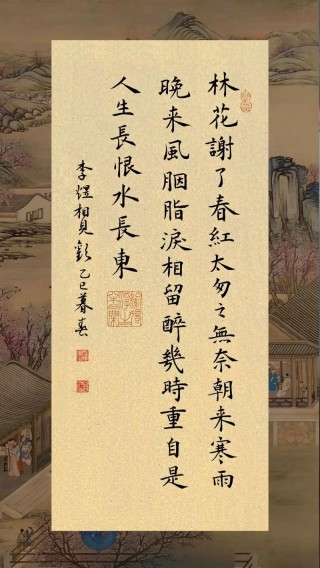 林花謝了春紅太匆之無奈朝来寒雨
晚来風胭脂淚相留醉幾時重自是
人生長恨水長東
李煜相見歡乙巳暮春